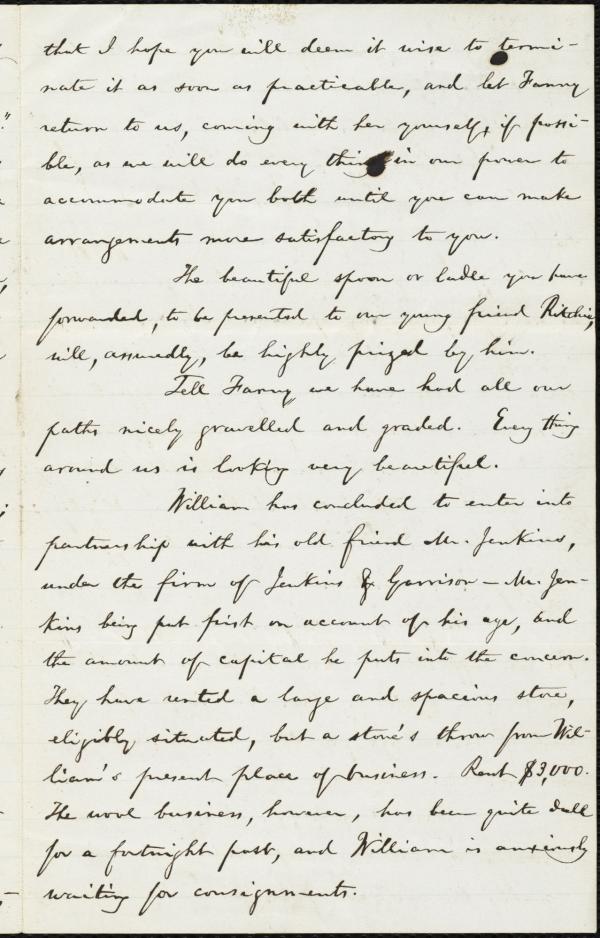 that I hope you will deem it wise to termi-
nate it as soon as practicable, and let Fanny
return to us, coming with her yourself, if possi-
ble, as we will do every thing in our power to
accommodate you both until you can make
arrangements more satisfactory to you.
The beautiful spoon or ladle you have
forwarded, to be presented to our young friend Ritchie,
will, assuredly, be highly prized by him.
Tell Fanny we have had all our
paths nicely gravelled and graded. Every thing
around us is looking very beautiful.
William has concluded to enter into
partnership with his old friend Mr. Jenkins,
under the firm of Jenkins & Garrison — Mr. Jen-
kins being put first on account of his age, and
the amount of capital he puts into the concern.
They have rented a large and spacious store,
eligibly situated, but a stone's throw from Wil-
liam's present place of business. Rent $3,000.
The wool business, however, has been quite dull
for a fortnight past, and William is anxiously
waiting for consignments.